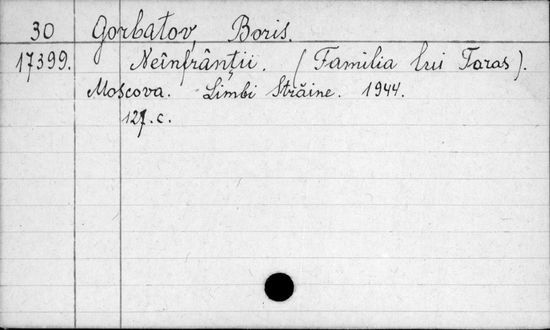 30 Gorbatov, Boris.
17399. Neînfrânții. (Familia lui Taras).
Moscova. Limbi Străine. 1944.
127.c.